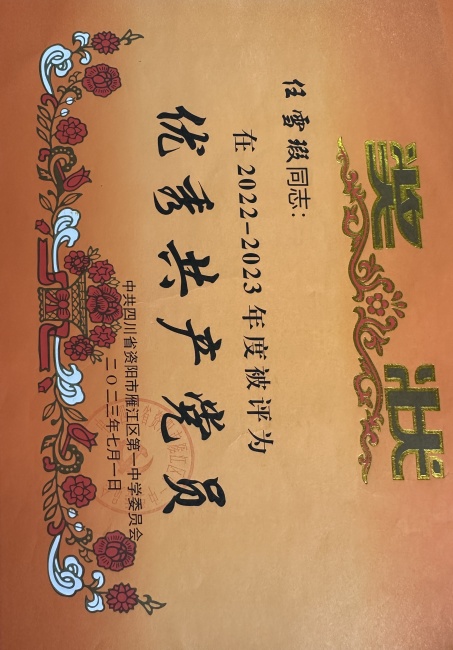 奖状
任雪瑕同志：
在2022-2023年度被评为
优秀共产党员
中共四川省资阳市雁江区第一中学委员会
二〇二三年七月一日